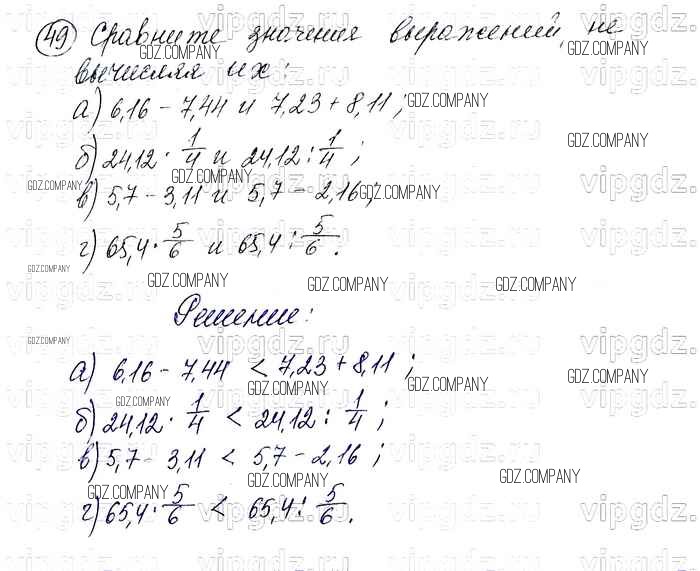 49 Сравните значения выражений, не
вычисляя их:
а) 6,16 - 7,44 и 7,23 + 8,11;
б) 24,12 · 1/4 и 24,12 : 1/4;
в) 5,7 - 3,11 и 5,7 - 2,16;
г) 65,4 · 5/6 и 65,4 : 5/6.
Решение:
а) 6,16 - 7,44 < 7,23 + 8,11;
б) 24,12 · 1/4 < 24,12 : 1/4;
в) 5,7 - 3,11 < 5,7 - 2,16;
г) 65,4 · 5/6 < 65,4 : 5/6.
GDZ.COMPANY
vipgdz.ru